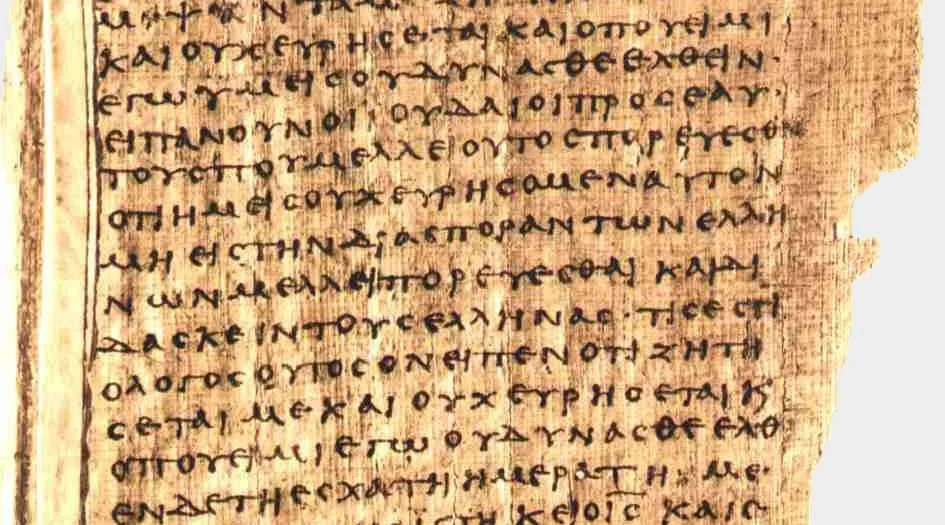 ΜΨΑΝΤΑΜ
ΚΑΙΟΥΧΕΥΡΗϹΕΤΑΙΚΑΙΟΠΟΥΕΙΜΙ
ΕΓΩΥΜΕΙϹΟΥΔΥΝΑϹΘΕΕΛΘΕΙΝ·
ΕΙΠΑΝΟΥΝΟΙΟΥΔΑΙΟΙΠΡΟϹΕΑΥ·
ΤΟΥϹΠΟΥΜΕΛΛΕΙΟΥΤΟϹΠΟΡΕΥΕϹΘ
ΟΤΙΗΜΕΙϹΟΥΧΕΥΡΗϹΟΜΕΝΑΥΤΟΝ
ΜΗΕΙϹΤΗΝΔΙΑϹΠΟΡΑΝΤΩΝΕΛΛΗ
ΝΩΝΜΕΛΛΕΙΠΟΡΕΥΕϹΘΑΙΚΑΙΔΙ
ΔΑϹΚΕΙΝΤΟΥϹΕΛΛΗΝΑϹ·ΤΙϹΕϹΤΙ
ΟΛΟΓΟϹΟΥΤΟϹΟΝΕΙΠΕΝΟΤΙΖΗΤΗ
ϹΕΤΑΙΜΕΚΑΙΟΥΧΕΥΡΗϹΕΤΑΙΚ
ΟΠΟΥΕΙΜΙΕΓΩΟΥΔΥΝΑϹΘΕΕΛΘ
ΕΝΔΕΤΗΕϹΧΑΤΗΗΜΕΡΑΤΗΜΕ·
ΙϹΤΗΚΕΙΟΙ̅Ϲ̅ΚΑΙ